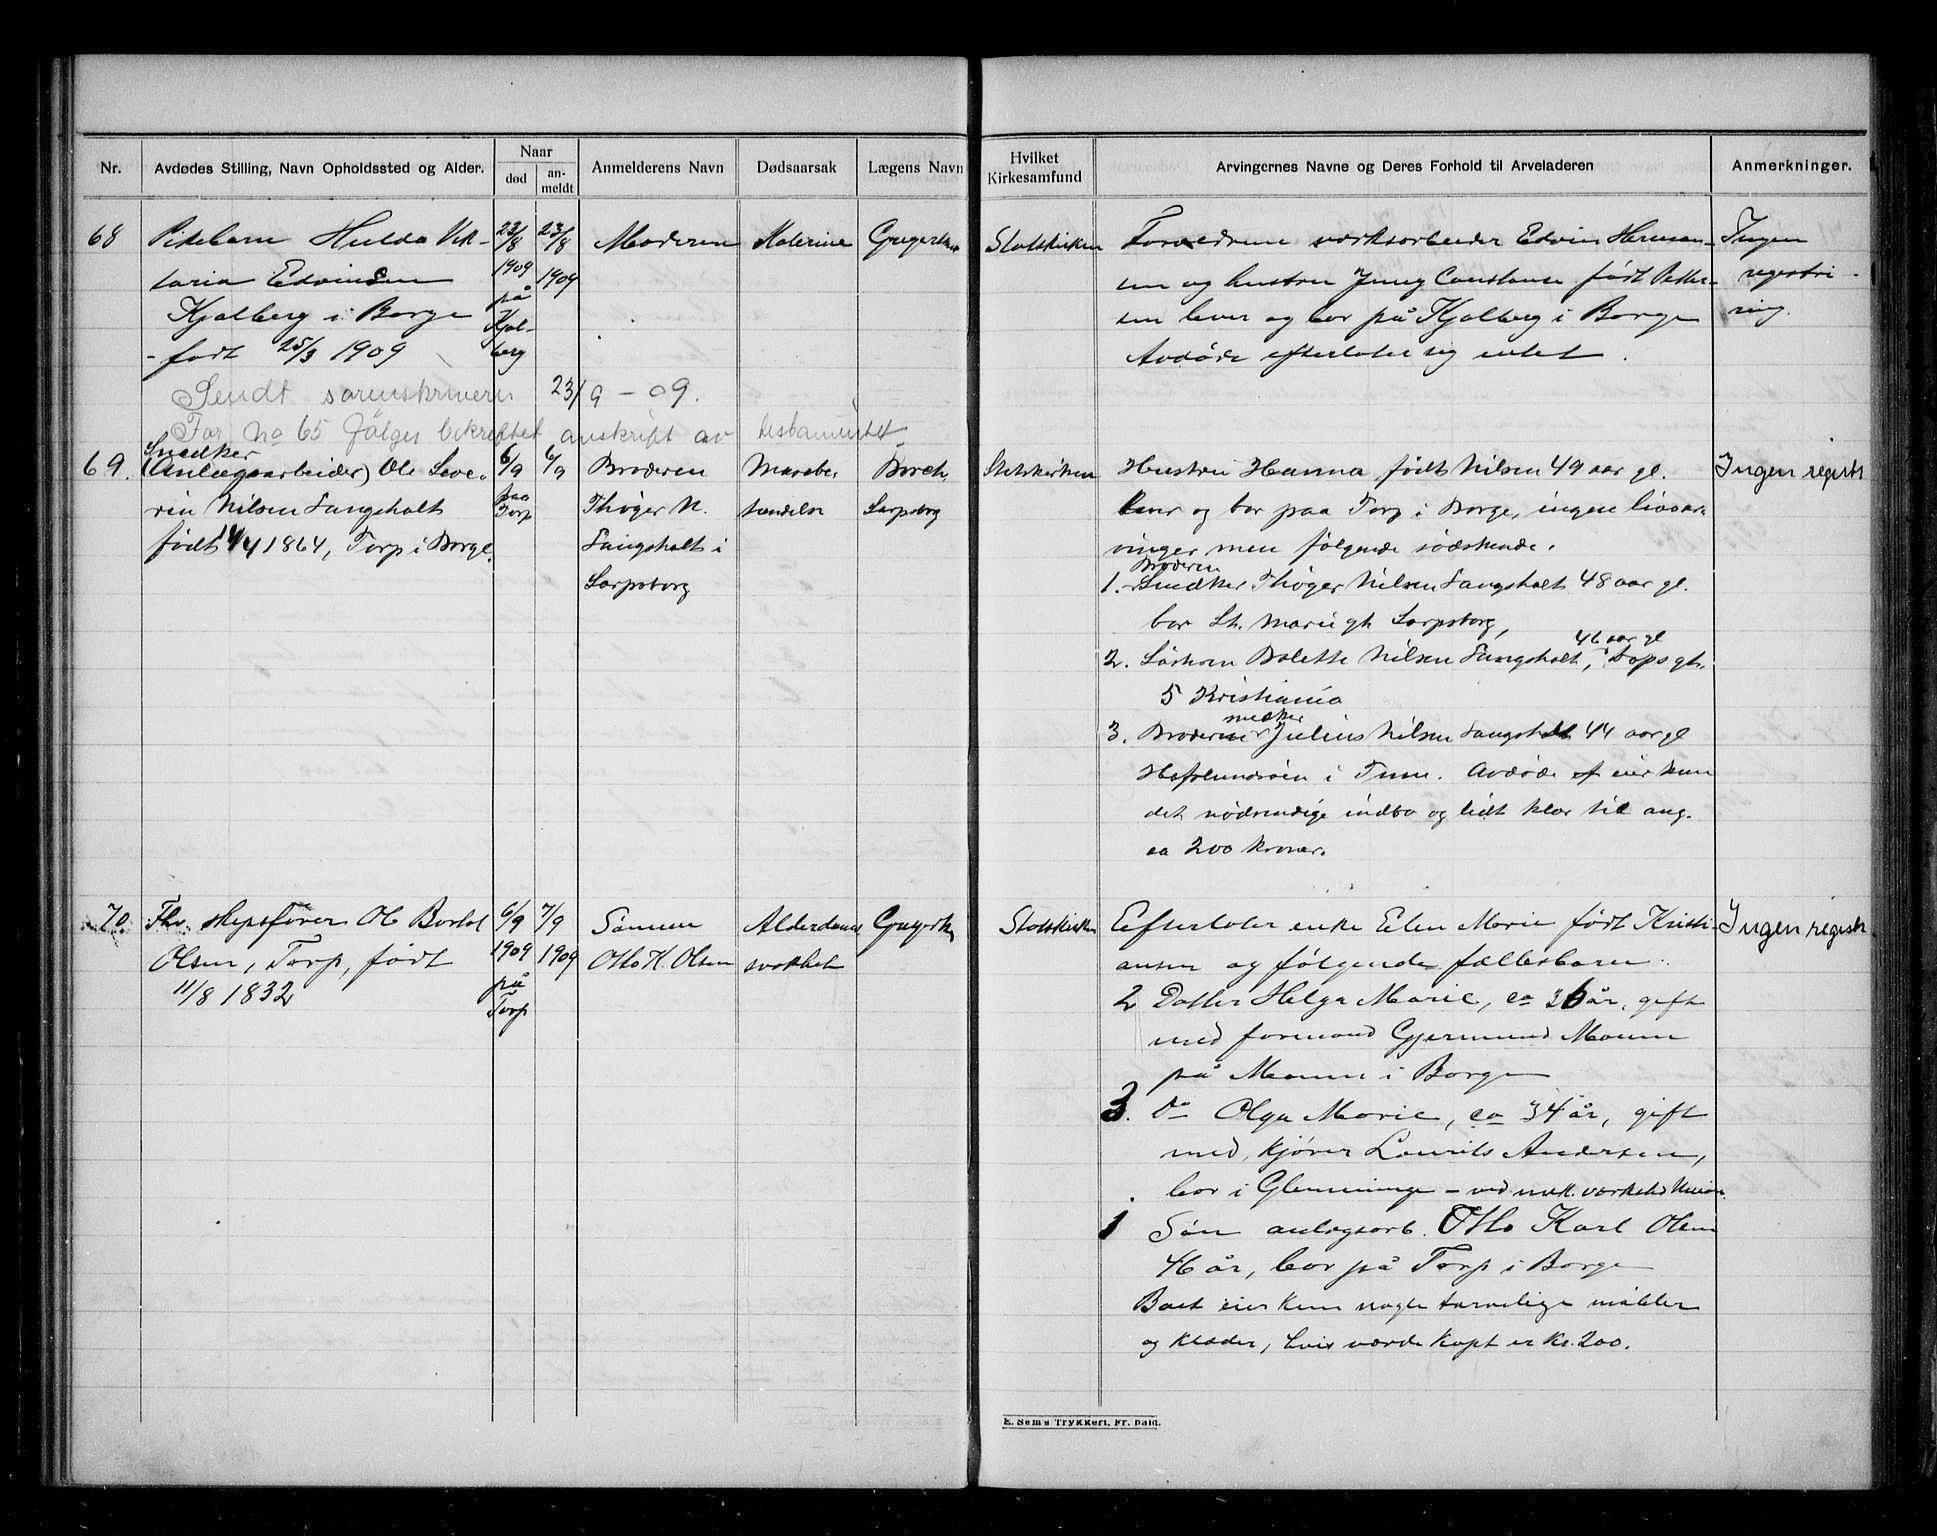 Nr.
Avdødes Stilling, Navn Opholdssted og Alder.
Naar
død
an-
meldt
Anmelderens Navn
Dødsaarsak
Lægens Navn
Hvilket
Kirkesamfund
Arvingernes Navne og Deres Forhold til Arveladeren
Anmerkninger.
68
Pikebarn Hulda Vik-
toria Edvinsen
Kjølberg i Borge
- født 25/3 1909
23/8
1909
på
Kjøl-
berg
23/8
1909
Moderen
Kolerine
Statskirken
Forældrene verksarbeider Edvin Herman-
sen og hustru Jenny Constanse født Petter-
sen lever og bor på Kjølberg i Borge
Avdøde efterlater sig intet.
Ingen
registri-
ring.
Sendt sorenskriveren 23/9 - 09.
For No 65 følger bekræftet avskrift av testamentet.
69.
Snedker
(Anlægsarbeider) Ole Seve-
rin Nilsen Langsholt
født 14/4 1864, Torp i Borge.
6/9
paa
Torp
6/9
Broderen
Thøger N.
Langsholt i
Sarpsborg
Borch
Sarpsborg
Statskirken
Hustru Hanna født Nilsen 49 aar gl.
lever og bor paa Torp i Borge, ingen livsar-
vinger men følgende sødskende.
Broderen
1. Snedker Thøger Nilsen Langsholt 48 aar gl.
bor St. Marie gt. Sarpsborg,
46 aar gl
2. Søsteren Bolette Nilsen Langsholt, Dops gt.
5 Kristiania
snedker
3. Broderen Julius Nilsen Langsholt 44 aar gl
Hafslundsøen i Tune. Avdøde eier kun
det nødvendige indbo og lidt klær til ang.
ca 200 kroner.
Ingen registr
70.
Fhv. skipsfører Ole Bortol
Olsen, Torp, født
11/8 1832
6/9
1909
på
Torp
7/9
1909
Sønnen
Otto K. Olsen
Alderdoms
svakhet
Statskirken
Efterlater enke Elen Marie født Kristi-
ansen og følgende fællesbarn:
2 Datter Helga Marie, ca 36 år, gift
med formand Gjermund Moum
på Moum i Borge
3. Do Olga Marie, ca 34 år, gift
med kjører Laurits Andersen,
bor i Glemminge - ved mek. værksted Union.
1 Søn anlægsarb. Otto Karl Olsen
46 år, bor på Torp i Borge
Boet eier kun nogle tarvelige møbler
og klæder, hvis værde høpt er Kr. 200.
Ingen registr
E. Sem's Trykkeri, Fr.hald.